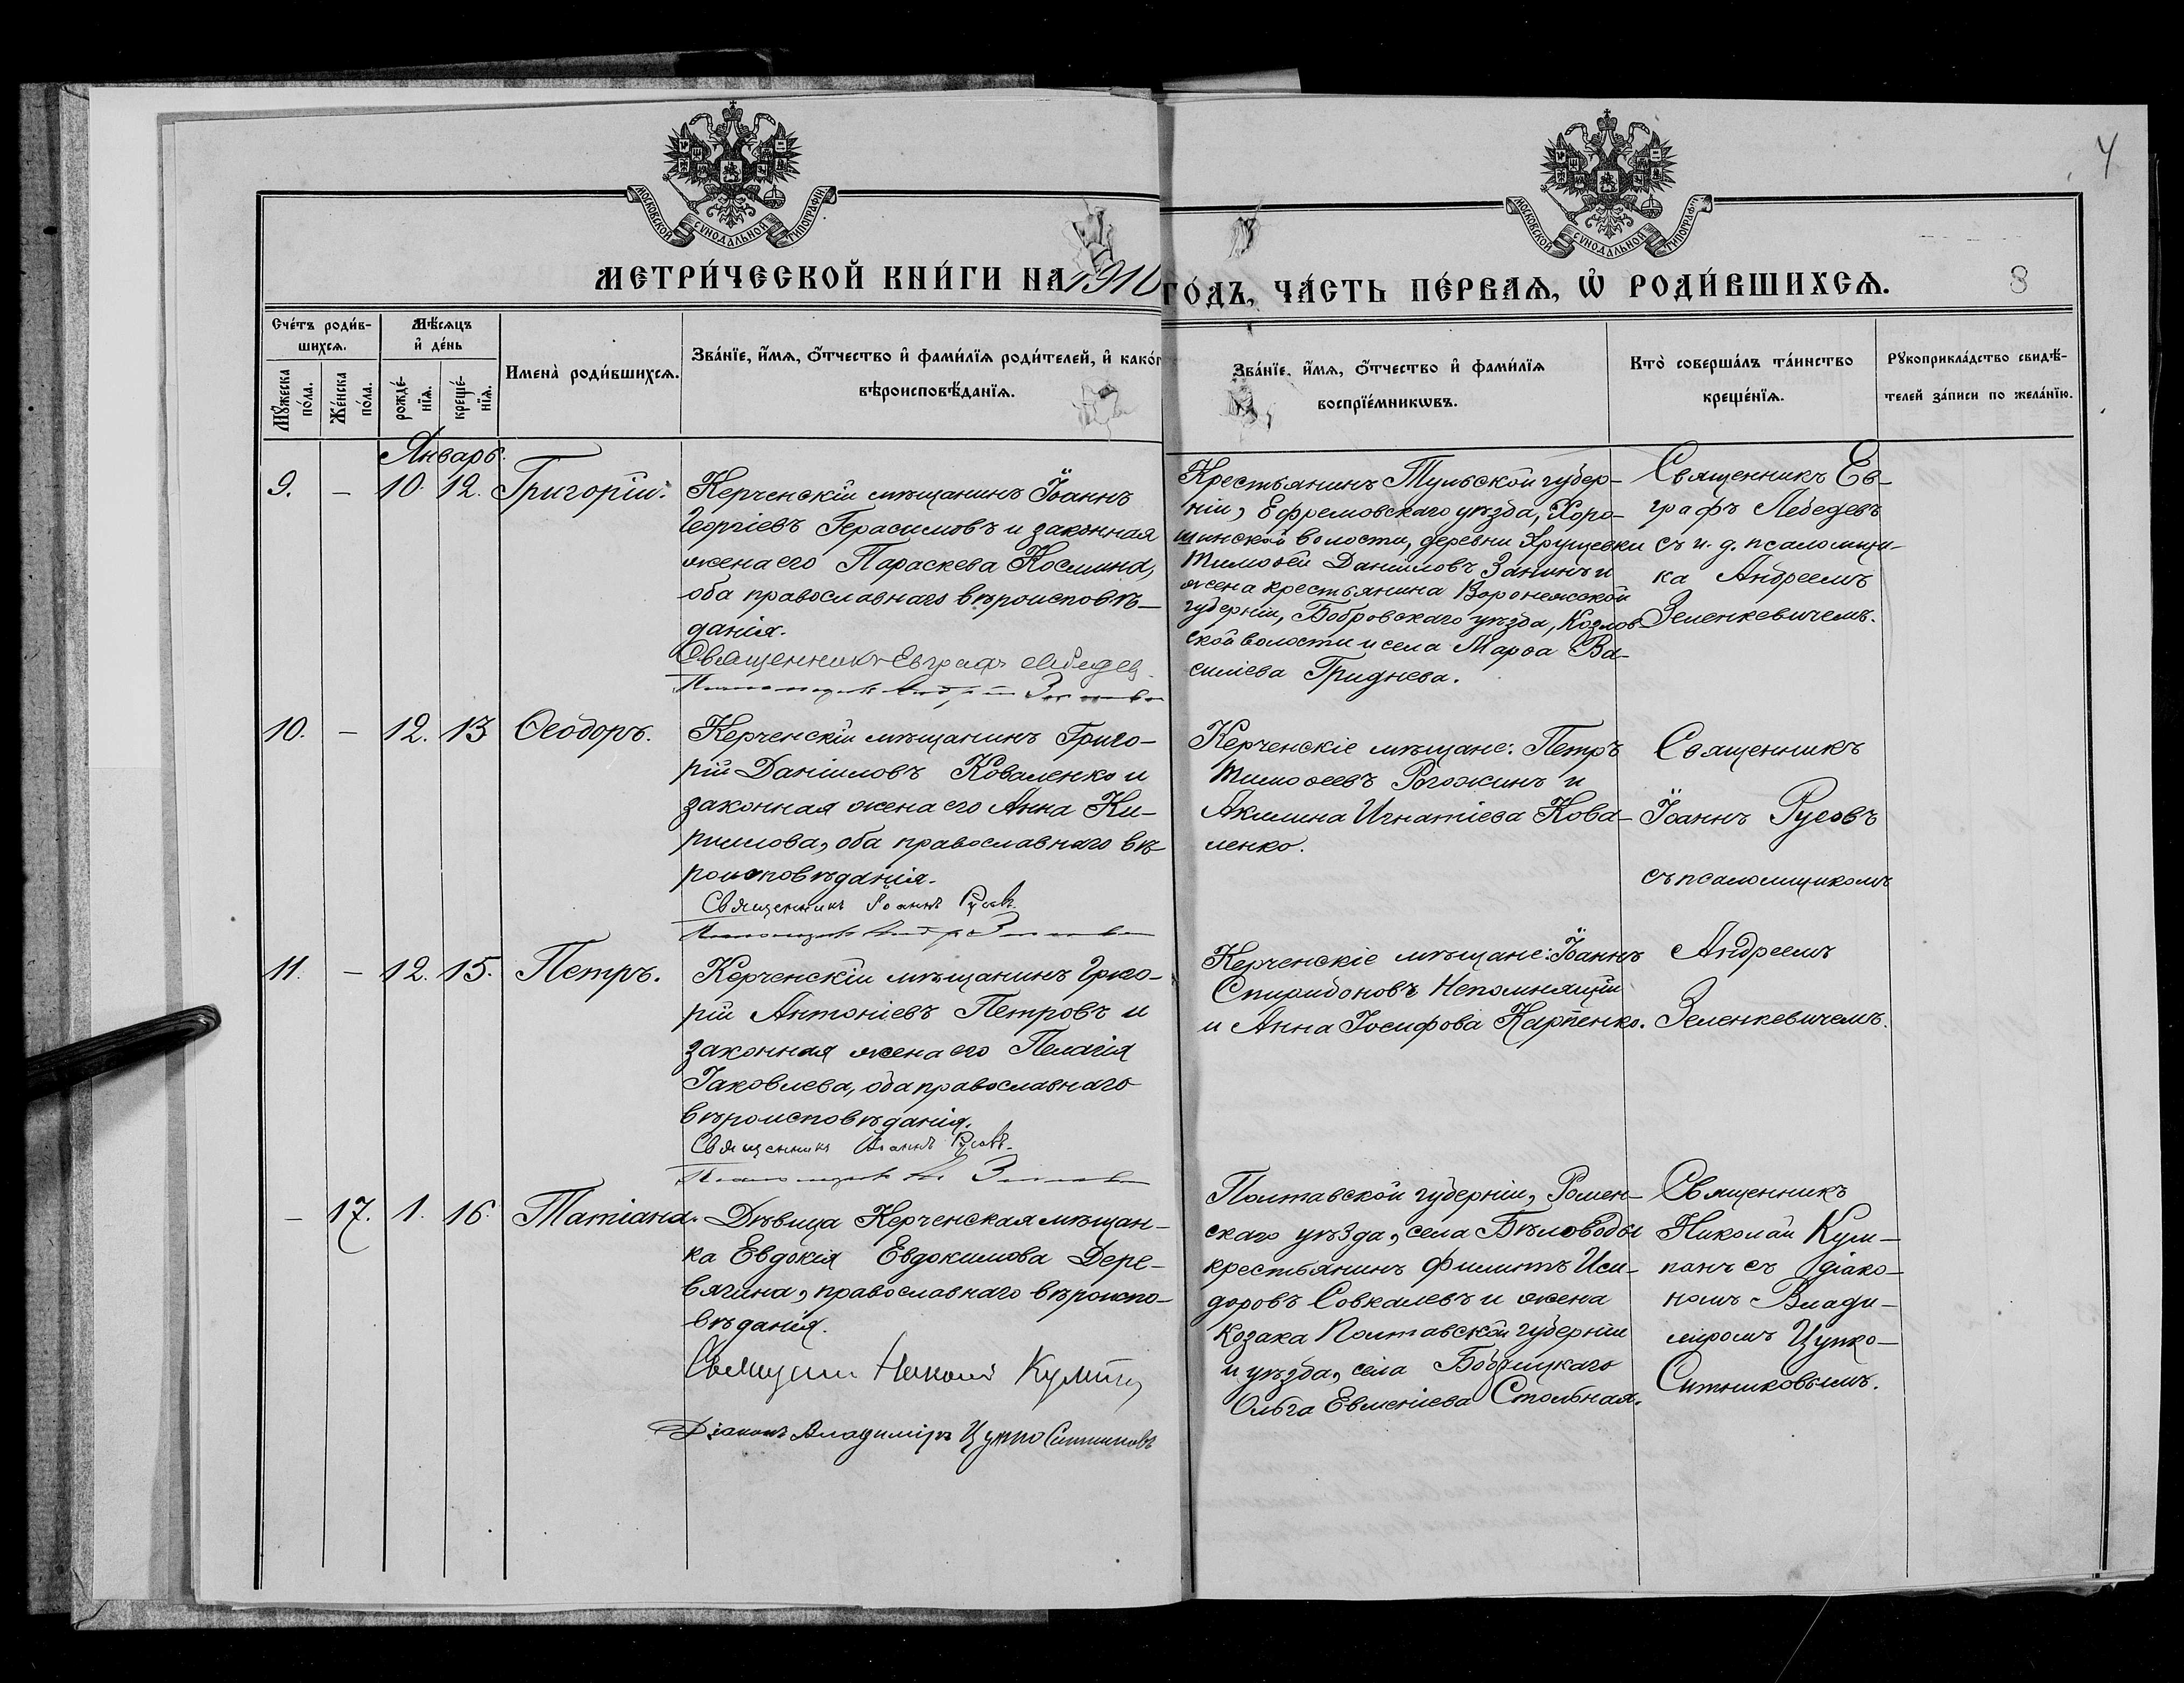 4
МОСКОВСКОЙ СУНОДАЛЬНОЙ ТИПОГРАФІИ
МОСКОВСКОЙ СУНОДАЛЬНОЙ ТИПОГРАФІИ
МЕТРИ́ЧЕСКОЙ КНИ́ГИ НА 1910 ГО́ДЪ, ЧА́СТЬ ПЕ́РВАѦ, Ѡ҆ РОДИ́ВШИХСѦ.
8
Сче́тъ роди́в-
шихсѧ.
Мꙋ́жеска
по́ла.
Же́нска
по́ла.
Мѣ́сѧцъ
и҆ де́нь
рожде́-
нїѧ.
креще́-
нїѧ.
Имена̀ роди́вшихсѧ.
Зва́нїе, и҆́мѧ, ѻ҆́тчество и҆ фами́лїѧ роди́телей, и҆ како́г
вѣроисповѣ́данїѧ.
Зва́нїе, и҆́мѧ, ѻ҆́тчество и҆ фами́лїѧ
воспрїе́мникѡвъ.
Кто̀ соверша́лъ та́инство
креще́нїѧ.
Рꙋкоприкла́дство свидѣ́-
телей за́писи по жела́нїю.
Январь.
9. – 10. 12. Григорій.
Керченскій мѣщанинъ Іоаннъ
Георгіевъ Герасимовъ и законная
жена его Параскева Космина,
оба православнаго вѣроисповѣ-
данія.
Священникъ Евграфъ Лебедев
Крестьянинъ Тульской губер-
ніи, Ефремовскаго уѣзда, Хоро-
шинской волости, деревни Хрущевки
Тимоѳей Даниловъ Занинъ и
жена крестьянина Воронежской
губерніи, Бобровскаго уѣзда, Козлов-
ской волости и села Марѳа Ва-
силіева Гриднева.
Священникъ Ев-
графъ Лебедевъ
съ и. д. псаломщи-
ка Андреемъ
Зеленкевичемъ.
10. – 12. 13 Ѳеодоръ.
Керченскій мѣщанинъ Григо-
рій Даніиловъ Коваленко и
законная жена его Анна Ки-
риллова, оба православнаго вѣ-
роисповѣданія.
Священникъ Іоаннъ Русовъ.
Керченскіе мѣщане: Петръ
Тимоѳеевъ Рогожинъ и
Акилина Игнатіева Кова-
ленко.
Священникъ
Іоаннъ Русовъ
съ псаломщикомъ
Андреемъ
Зеленкевичемъ.
11. – 12. 15. Петръ.
Керченскій мѣщанинъ Григо-
рій Антоніевъ Петровъ и
законная жена его Пелагія
Іаковлева, оба православнаго
вѣроисповѣданія.
Священникъ Іоаннъ Русовъ.
Керченскіе мѣщане: Іоаннъ
Спиридоновъ Непомнящій
и Анна Іосифова Карпенко.
– 17. 1. 16. Татіана.
Дѣвица Керченская мѣщан-
ка Евдокія Евдокимова Дере-
вягина, православнаго вѣроиспо-
вѣданія.
Николай
Діаконъ Владиміръ Цупко Ситниковъ
Полтавской губерніи, Ромен-
скаго уѣзда, села Бѣловоды
крестьянинъ Филиппъ Иси-
доровъ Совкалевъ и жена
козака Полтавской губерніи
и уѣзда, села Бобрицкаго
Ольга Евменіева Стольная.
Священникъ
Николай Кул-
панъ съ діако-
номъ Влади-
міромъ Цупко-
Ситниковымъ.